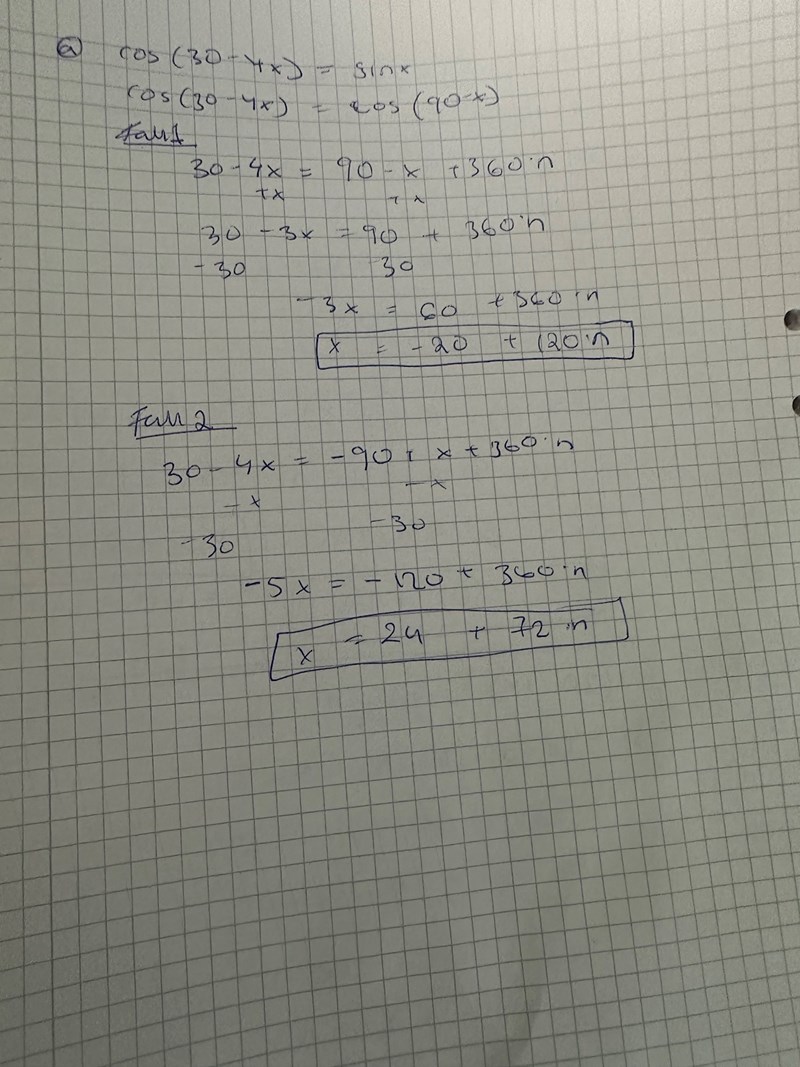 a) cos(30-4x) = sinx
cos(30-4x) = cos(90-x)
Fall 1
30-4x = 90-x +360·n
+x +x
30 -3x = 90 + 360·n
-30 30
-3x = 60 +360·n
x = -20 + 120·n
Fall 2
30-4x = -90+x+360·n
-x -x
-30 -30
-5x = -120 + 360·n
x = 24 + 72·n